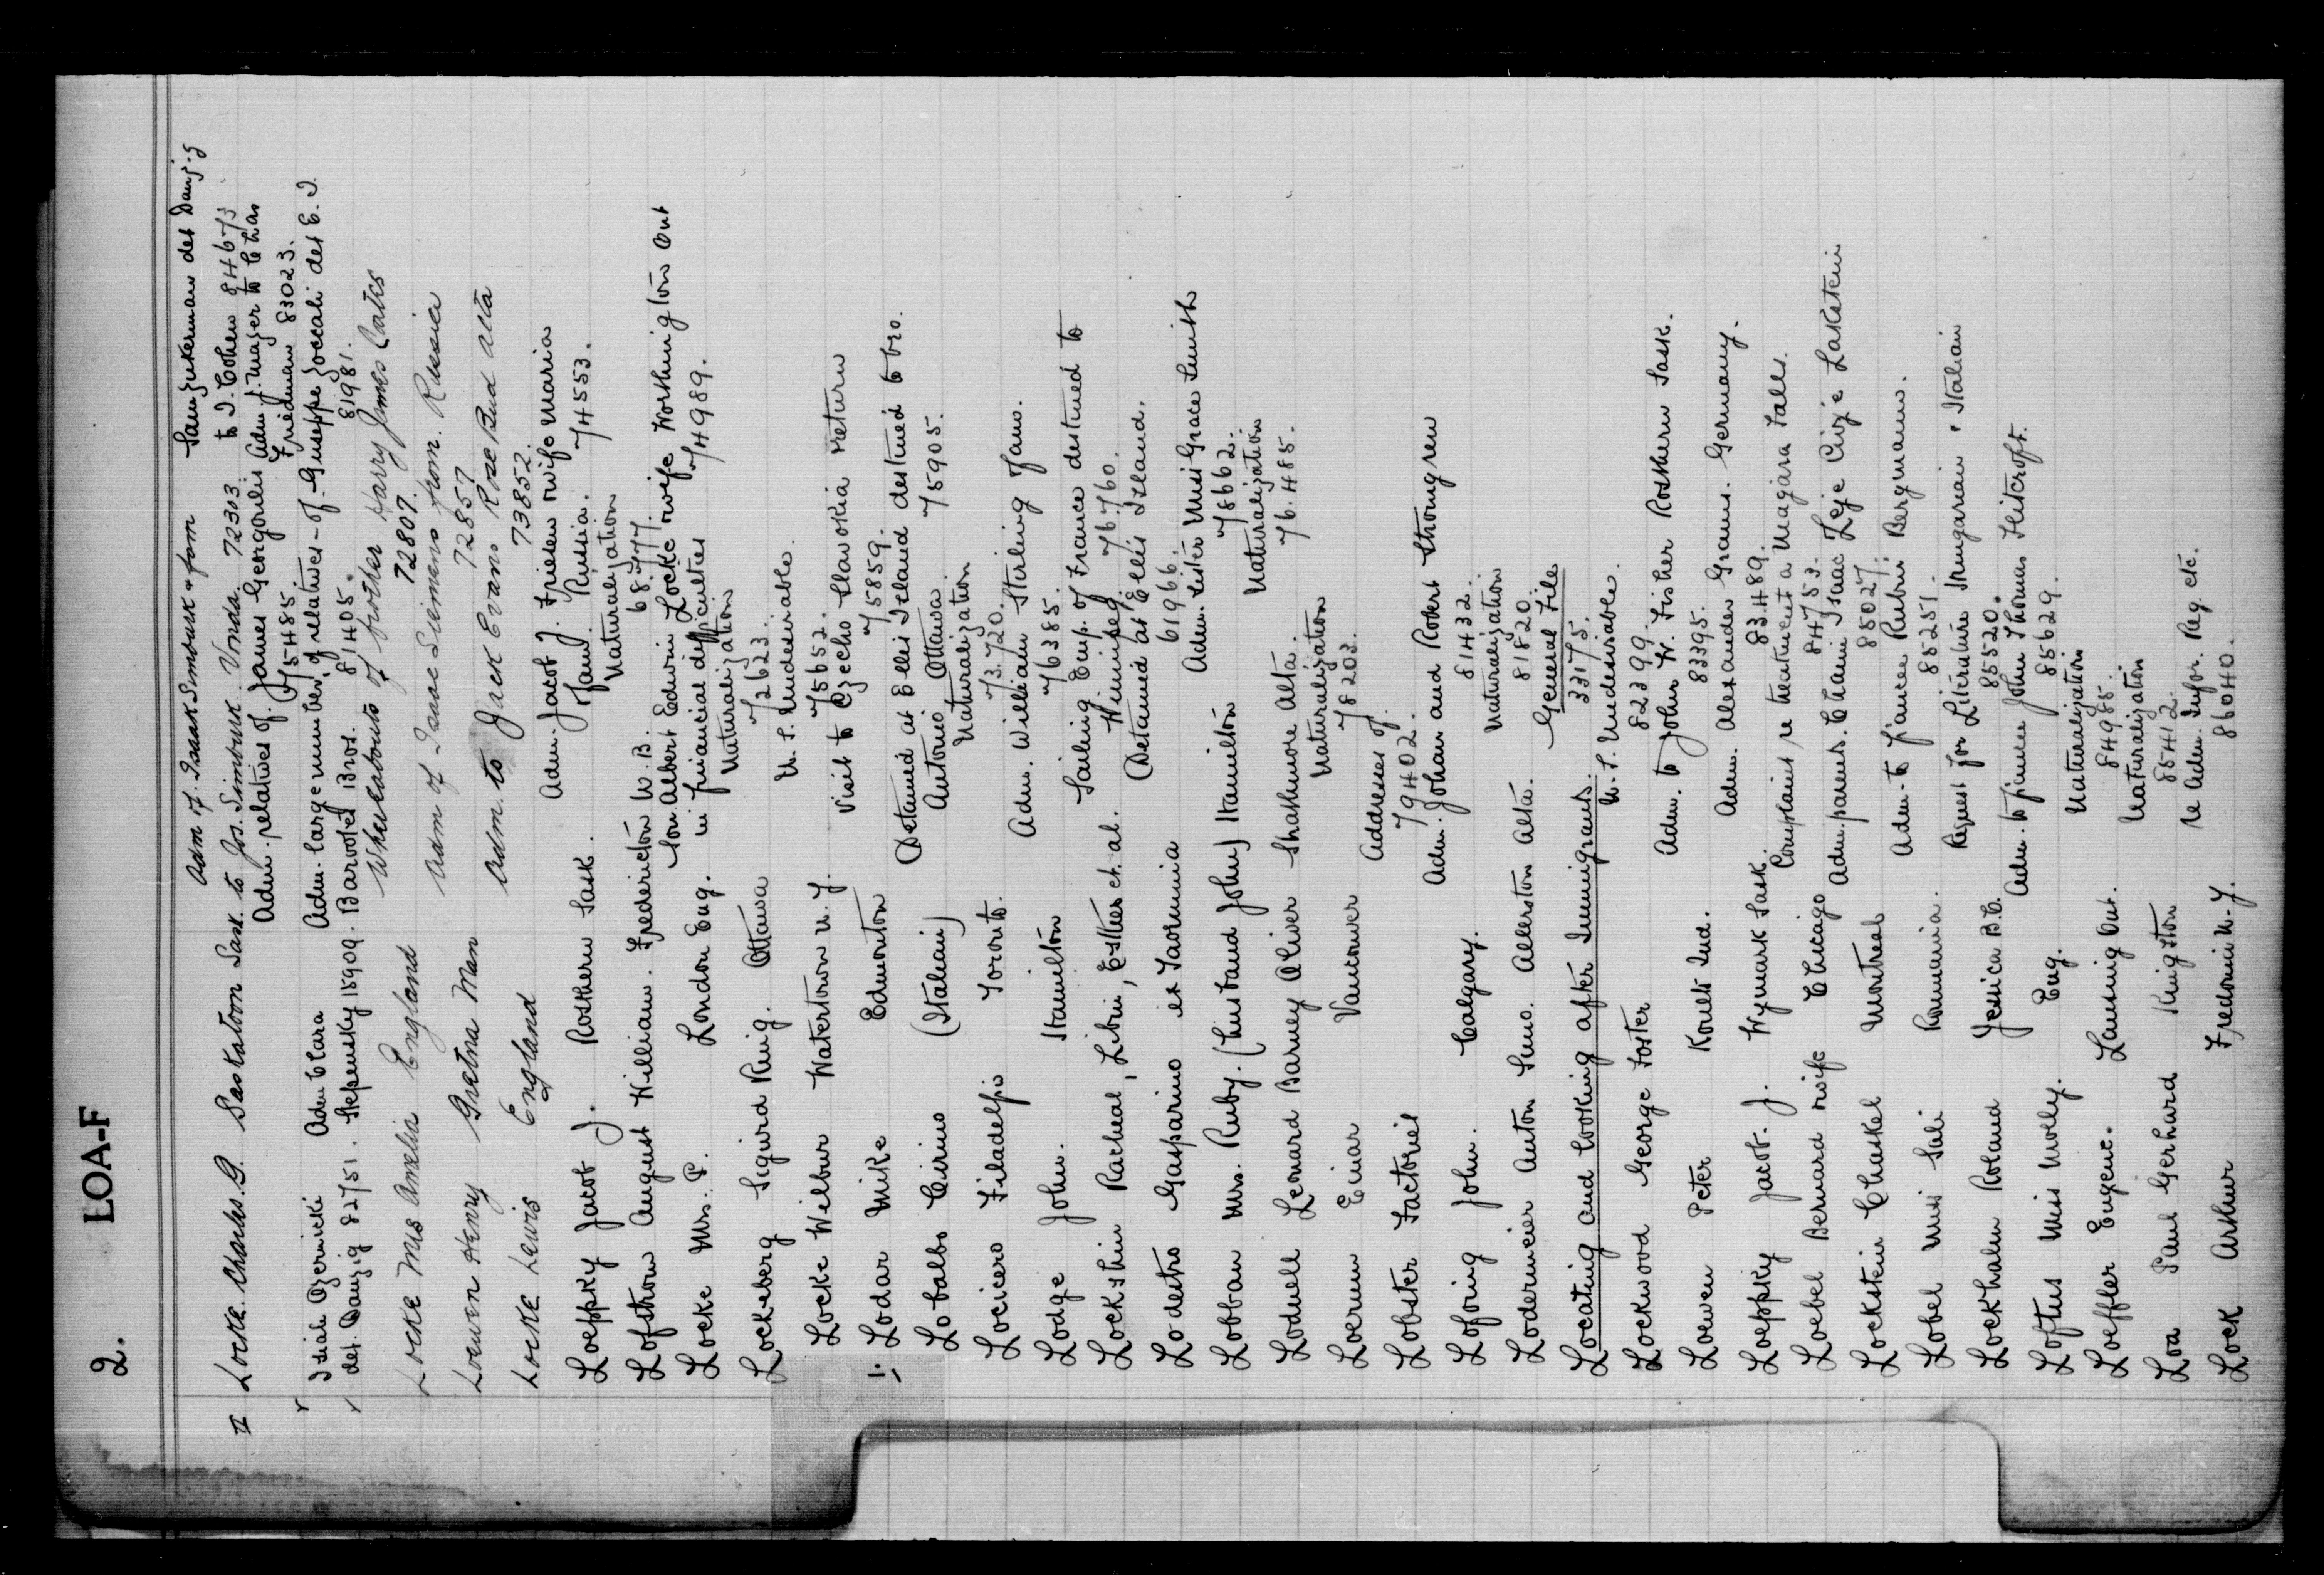 2. LOA-F
Adm of. Isaak Simbusk & fam
Sam Zukerman det Danzig
Locke. Charles. G. Saskatoon Sask. to Jos. Simbusk. Vonda. 72303 to I. Cohen 84673
Adm. relatives of. James Georgoulis Adm. J. Majer to Chas
75485. Friedman 83023.
Isiah Ozernicki Adm Clara Adm. large number of relatives - of. Guiseppe Zoccali det E. I.
det. Danzig 82751. Stepensky 18909. Barootes Bros. 81405. 81981.
Locke Mrs Amelia England Whereabouts of brother Harry James Coates
72807.
Loewen Henry Gretna Man Adm of Isaac Siemens from. Russia
72857
Locke Lewis England Adm. to Jack Evans Rose Bud Alta
73852.
Loeppky Jacob J. Rosthern Sask. Adm. Jacob J. Friesen wife Maria
& fam. Russia. 74553.
Lofstrom August William. Fredericton N.B. Naturalization
68.777.
Locke Mrs. P. London Eng. Son Albert Edwin Locke wife Worthington Ont
in financial difficulties 74989.
Lockeberg Sigurd Ring. Ottawa Naturalization
72623.
Locke Wilbur Watertown N.Y. U.S. Undesirable.
75652.
Lodar Mike Edmonton Visit to Czecho Slavokia return
75859.
Lobalbo Cirino (Italian) Detained at Ellis Island destined to bro.
Antonio Ottawa. 75905.
Locicero Filadelfio Toronto. Naturalization
73.720.
Lodge John. Hamilton Adm. William Stirling & fam.
76385.
Lockshin Racheal, Libin, Esther et. al. Sailing Emp. of France destined to
Winnipeg. 76760.
Lodestro Gasparino ex Taormina Detained at Ellis Island.
61966.
Lobban Mrs. Ruby. (husband John) Hamilton Adm. sister Miss Grace Smith
78662.
Loduell Leonard Barney Oliver Strathmore Alta. Naturalization
76.485.
Loerum Einar Vancouver Naturalization
78203.
Lobster Factories Addresses of.
79402.
Lofoing John. Calgary. Adm. Johan and Robert Stromgren
81432.
Lodermeier Anton Simo. Allerston Alta. Naturalization
81820.
Locating and Looking after Immigrants. General File
33175.
Lockwood George Foster U.S. Undesirable.
82399.
Loewen Peter Kouts Ind. Adm. to John W. Fisher Rosthern Sask.
83395.
Loeppky Jacob. J. Wymark Sask. Adm. Alexander Grams. Germany.
83489.
Loebel Bernard wife Chicago Complaint re treatment a Niagara Falls.
84753.
Lockstein Chaskel Montreal Adm. parents. Chaim Isaac Leje Civje Lakstein
85027
Lobel Miss Sali Romania. Adm. to fiance Rubin Bergmann.
85251.
Lockhalm Roland Jessica B.C. Request for Literature Hungarian & Italian
85520.
Loftus Miss Molly. Eng. Adm. to fiance John Thomas Flitcroft.
85629.
Loeffler Eugene. Lansing Ont. Naturalization
84985.
Loa Paul Gerhard Kingston Naturalization
85412.
Lock Arthur Fredonia N.Y. re Adm. Infor. Reg. etc.
86040.